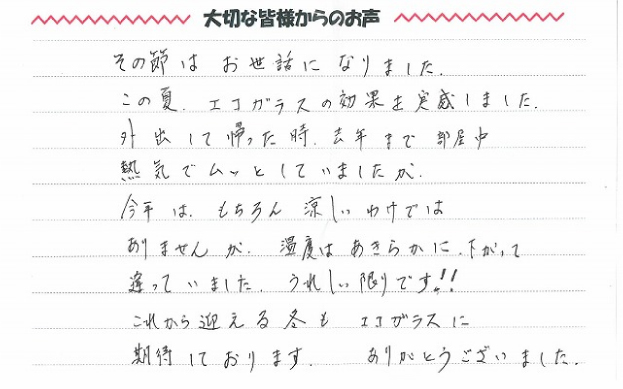 大切な皆様からのお声
その節は お世話に なりました.
この夏. エコガラスの効果を実感しました.
外出して帰った時. 去年まで 部屋中
熱気でムッとしていましたが.
今年は. もちろん 涼しいわけでは
ありませんが. 温度は あきらかに. 下がって
違っていました. うれしい限りです!!
これから迎える冬も エコガラスに
期待しております. ありがとうございました.